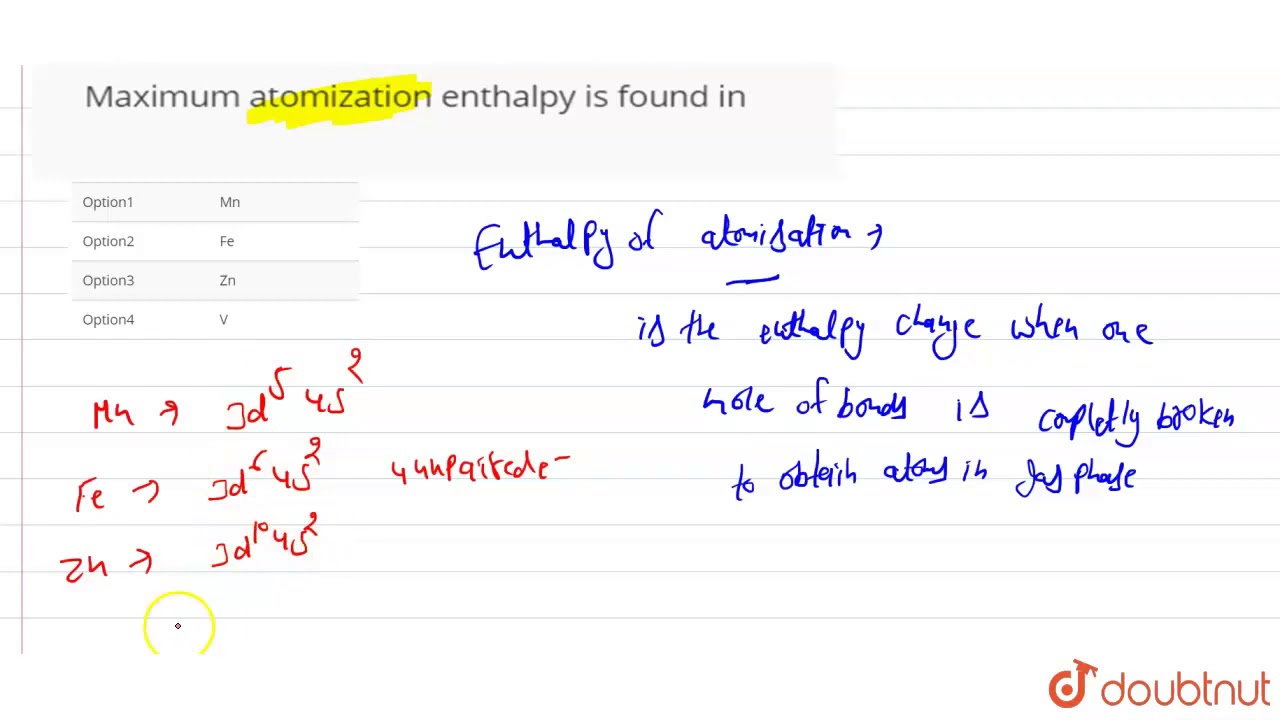 Maximum atomization enthalpy is found in
Option1 Mn
Option2 Fe
Option3 Zn
Option4 V
Enthalpy of atomisation →
is the enthalpy change when one
mole of bonds is completly broken
to obtain atoms in gas phase
Mn → 3d⁵ 4s²
Fe → 3d⁶ 4s² 4 unpaired e⁻
Zn → 3d¹⁰ 4s²
doubtnut